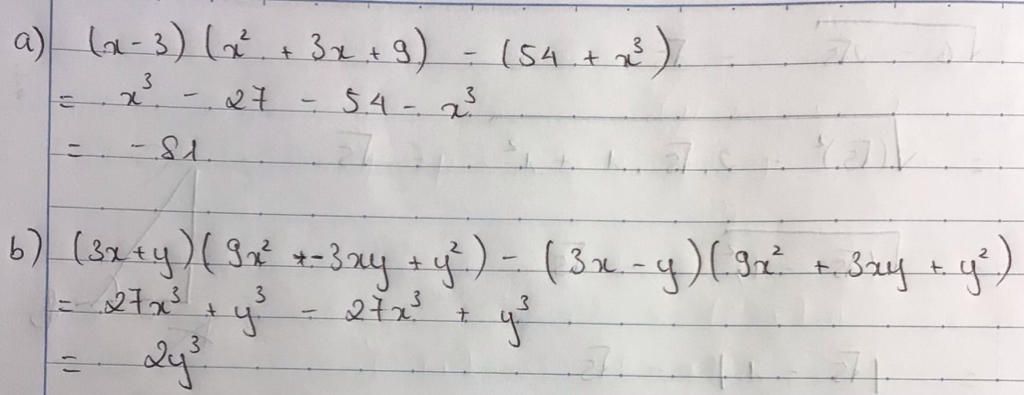 a) (x - 3) (x² + 3x + 9) - (54 + x³)
= x³ - 27 - 54 - x³
= -81
b) (3x + y) (9x² - 3xy + y²) - (3x - y) (9x² + 3xy + y²)
= 27x³ + y³ - 27x³ + y³
= 2y³